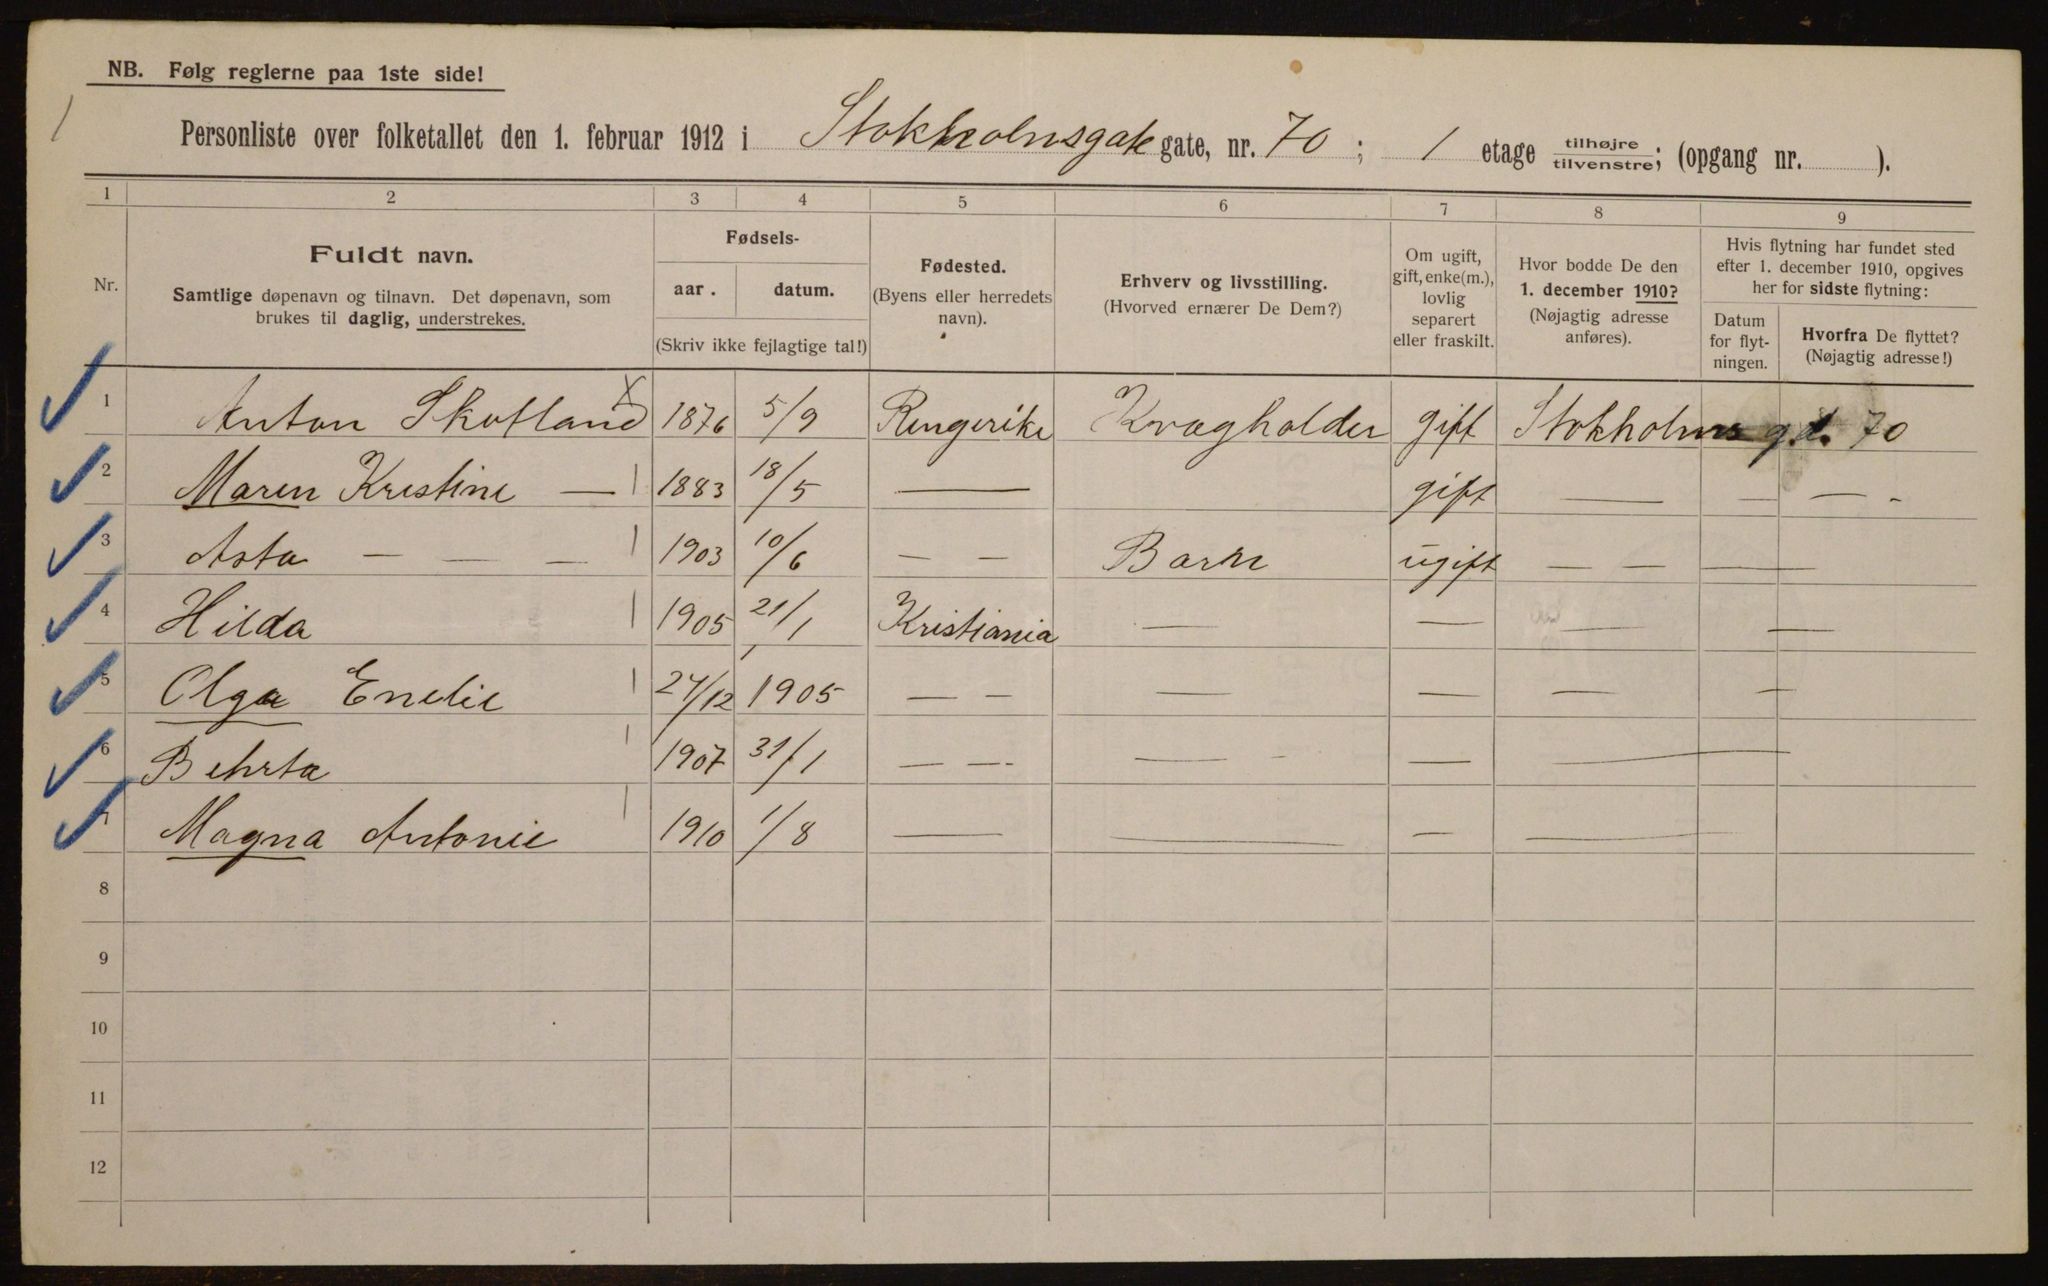 NB. Følg reglerne paa 1ste side!
1
Personliste over folketallet den 1. februar 1912 i Stokholmsgate gate, nr. 70 ; 1 etage tilhøjre tilvenstre; (opgang nr. ).
1 2 3 4 5 6 7 8 9
Nr.
Fuldt navn.
Samtlige døpenavn og tilnavn. Det døpenavn, som
brukes til daglig, understrekes.
Fødsels-
aar. datum.
(Skriv ikke fejlagtige tal!)
Fødested.
(Byens eller herredets
navn).
Erhverv og livsstilling.
(Hvorved ernærer De Dem?)
Om ugift,
gift, enke(m.),
lovlig
separert
eller fraskilt.
Hvor bodde De den
1. december 1910?
(Nøjagtig adresse
anføres).
Hvis flytning har fundet sted
efter 1. december 1910, opgives
her for sidste flytning:
Datum
for flyt-
ningen.
Hvorfra De flyttet?
(Nøjagtig adresse!)
1 Anton Skotland X 1876 5/9 Ringerike Kvægholder gift Stokholms gd. 70
2 Maren Kristine — 1883 18/5 — gift — — — -
3 Asta — — — 1903 10/6 — — Barn ugift — — —
4 Hilda 1905 21/1 Kristiania — — — —
5 Olga Enelie 27/12 1905 — — — — — —
6 Behrta 1907 31/1 — — — - — —
7 Magna Antonie 1910 1/8 — — — —
8
9
10
11
12